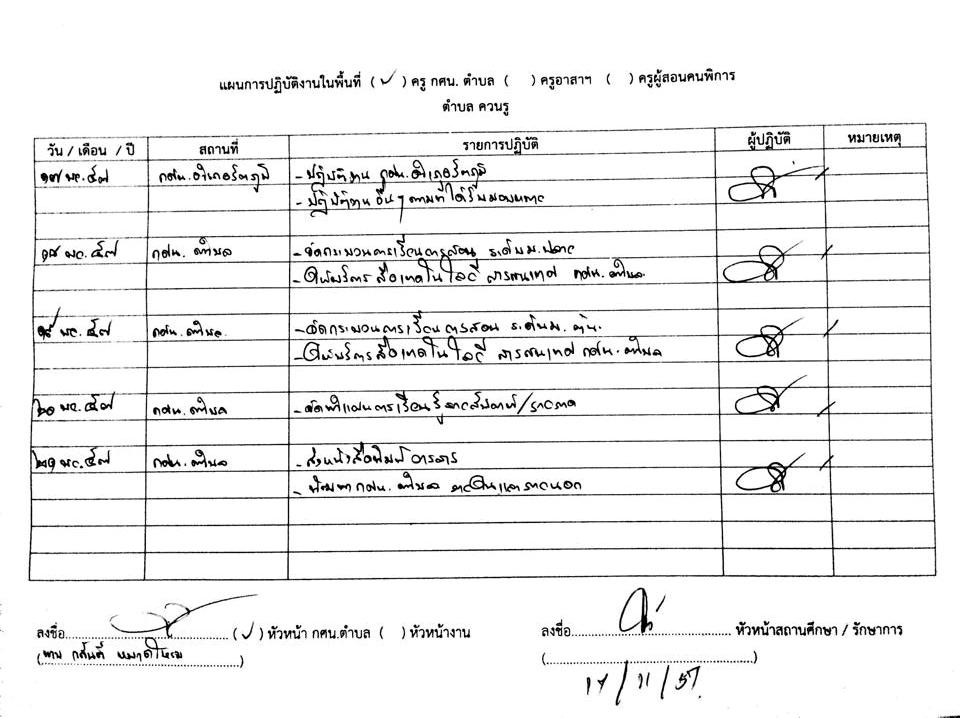 แผนการปฏิบัติงานในพื้นที่ ( ✓ ) ครู กศน. ตำบล ( ) ครูอาสาฯ ( ) ครูผู้สอนคนพิการ
ตำบล ควนรู
วัน / เดือน / ปี สถานที่ รายการปฏิบัติ ผู้ปฏิบัติ หมายเหตุ
๑๗ พย. ๕๗ กศน. อำเภอรัตภูมิ - ปฏิบัติงาน กศน. อำเภอรัตภูมิ
- ปฏิบัติงานอื่นๆ ตามที่ได้รับมอบหมาย
๑๘ พย. ๕๗ กศน. ตำบล - จัดกระบวนการเรียนการสอน ระดับ ม.ปลาย
- ให้บริการสื่อเทคโนโลยี สารสนเทศ กศน. ตำบล
๑๙ พย. ๕๗ กศน. ตำบล - จัดกระบวนการเรียนการสอน ระดับ ม. ต้น
- ให้บริการสื่อเทคโนโลยี สารสนเทศ กศน. ตำบล
๒๐ พย. ๕๗ กศน. ตำบล - จัดทำแผนการเรียนรู้รายสัปดาห์/รายภาค
๒๑ พย. ๕๗ กศน. ตำบล - ส่งหนังสือพิมพ์ วารสาร
- พัฒนา กศน. ตำบล ภายในและภายนอก
ลงชื่อ (✓) หัวหน้า กศน.ตำบล ( ) หัวหน้างาน ลงชื่อ หัวหน้าสถานศึกษา / รักษาการ
17 / 11 / 57